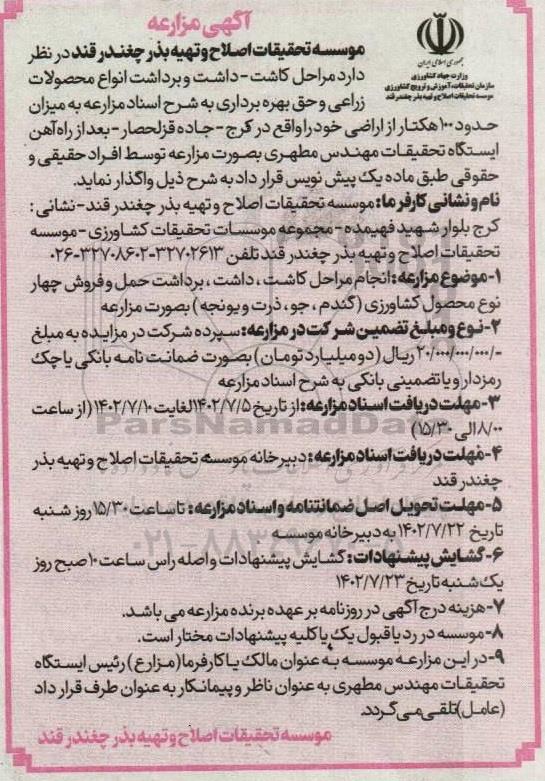 آگهی مزارعه
جمهوری اسلامی ایران
وزارت جهاد کشاورزی
سازمان تحقیقات، آموزش و ترویج کشاورزی
موسسه تحقیقات اصلاح و تهیه بذر چغندر قند
موسسه تحقیقات اصلاح و تهیه بذر چغندر قند در نظر
دارد مراحل کاشت - داشت و برداشت انواع محصولات
زراعی و حق بهره برداری به شرح اسناد مزارعه به میزان
حدود ۱۰۰ هکتار از اراضی خود را واقع در کرج - جاده قزلحصار - بعد از راه آهن
ایستگاه تحقیقات مهندس مطهری بصورت مزارعه توسط افراد حقیقی و
حقوقی طبق ماده یک پیش نویس قرار داد به شرح ذیل واگذار نماید.
نام و نشانی کارفرما: موسسه تحقیقات اصلاح و تهیه بذر چغندر قند - نشانی :
کرج بلوار شهید فهمیده - مجموعه موسسات تحقیقات کشاورزی - موسسه
تحقیقات اصلاح و تهیه بذر چغندر قند تلفن ۳۲۷۰۲۶۱۳-۳۲۷۰۸۶۰۲-۰۲۶
۱- موضوع مزارعه: انجام مراحل کاشت ، داشت ، برداشت حمل و فروش چهار
نوع محصول کشاورزی (گندم ، جو، ذرت و یونجه ) بصورت مزارعه
۲- نوع و مبلغ تضمین شرکت در مزارعه: سپرده شرکت در مزایده به مبلغ
۲۰/۰۰۰/۰۰۰/۰۰۰/- ریال (دو میلیارد تومان) بصورت ضمانت نامه بانکی یا چک
رمزدار و یا تضمینی بانکی به شرح اسناد مزارعه
۳- مهلت دریافت اسناد مزارعه: از تاریخ ۱۴۰۲/۷/۵ لغایت ۱۴۰۲/۷/۱۰ (از ساعت
۸/۰۰ الی ۱۵/۳۰)
۴- مهلت دریافت اسناد مزارعه: دبیرخانه موسسه تحقیقات اصلاح و تهیه بذر
چغندر قند
۵- مهلت تحویل اصل ضمانتنامه و اسناد مزارعه: تا ساعت ۱۵/۳۰ روز شنبه
تاریخ ۱۴۰۲/۷/۲۲ به دبیرخانه موسسه
۶- گشایش پیشنهادات: گشایش پیشنهادات واصله راس ساعت ۱۰ صبح روز
یک شنبه تاریخ ۱۴۰۲/۷/۲۳
۷- هزینه درج آگهی در روزنامه بر عهده برنده مزارعه می باشد.
۸- موسسه در رد یا قبول یک یا کلیه پیشنهادات مختار است.
۹- در این مزارعه موسسه به عنوان مالک یا کارفرما (مزارع) رئیس ایستگاه
تحقیقات مهندس مطهری به عنوان ناظر و پیمانکار به عنوان طرف قرار داد
(عامل) تلقی می گردد.
موسسه تحقیقات اصلاح و تهیه بذر چغندر قند
ParsNamadData